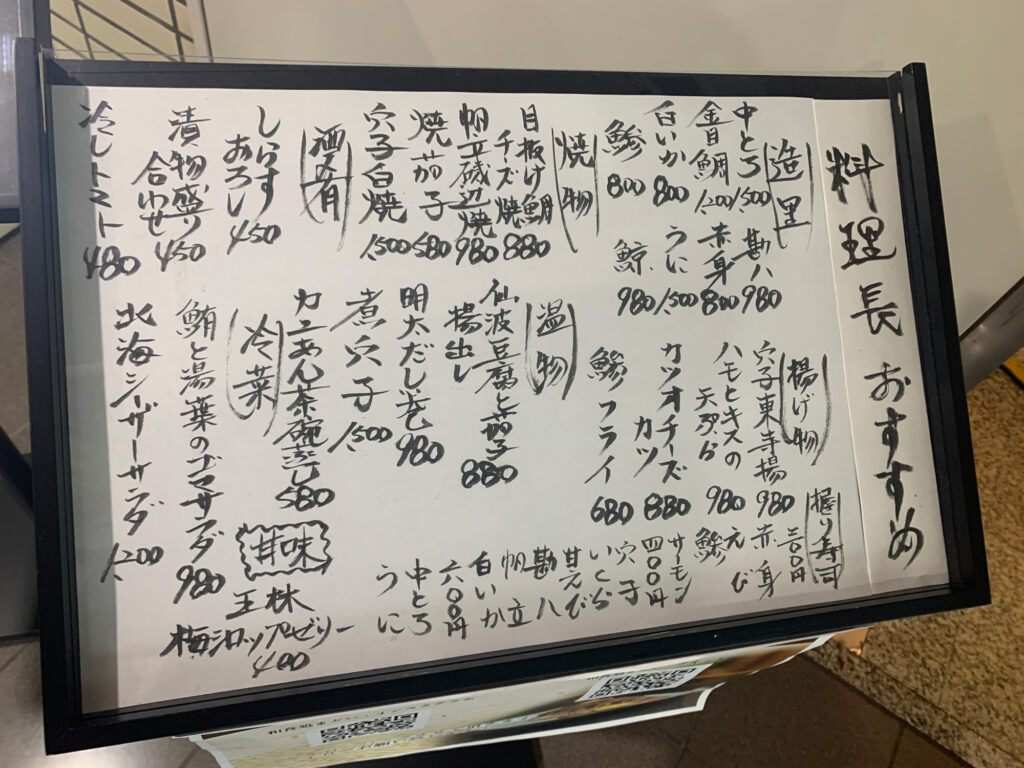 料理長おすすめ
造里
中とろ 1,500
勘八 980
金目鯛 1,200
赤身 800
白いか 800
うに 1,500
鯵 800
鯨 980
焼物
目板け鯛
チーズ焼 880
帆立磯辺焼 980
焼茄子 580
穴子白焼 1,500
酒肴
しらす
おろし 450
漬物盛り
合わせ 450
冷しトマト 480
揚げ物
穴子東寺揚 980
ハモとキスの
天ぷら 980
カツオチーズ
カツ 880
鯵フライ 680
温物
仙波豆腐と茄子
揚出し 880
明太だし巻 980
煮穴子 1,500
カニあん茶碗蒸し 580
冷菜
鮪と湯葉のゴマサラダ 980
北海シーザーサラダ 1,200
握り寿司
三〇〇円
赤身
えび
鯵
サーモン
四〇〇円
穴子
いくら
甘えび
勘八
帆立
白いか
六〇〇円
中とろ
うに
甘味
王林
梅シロップゼリー
400